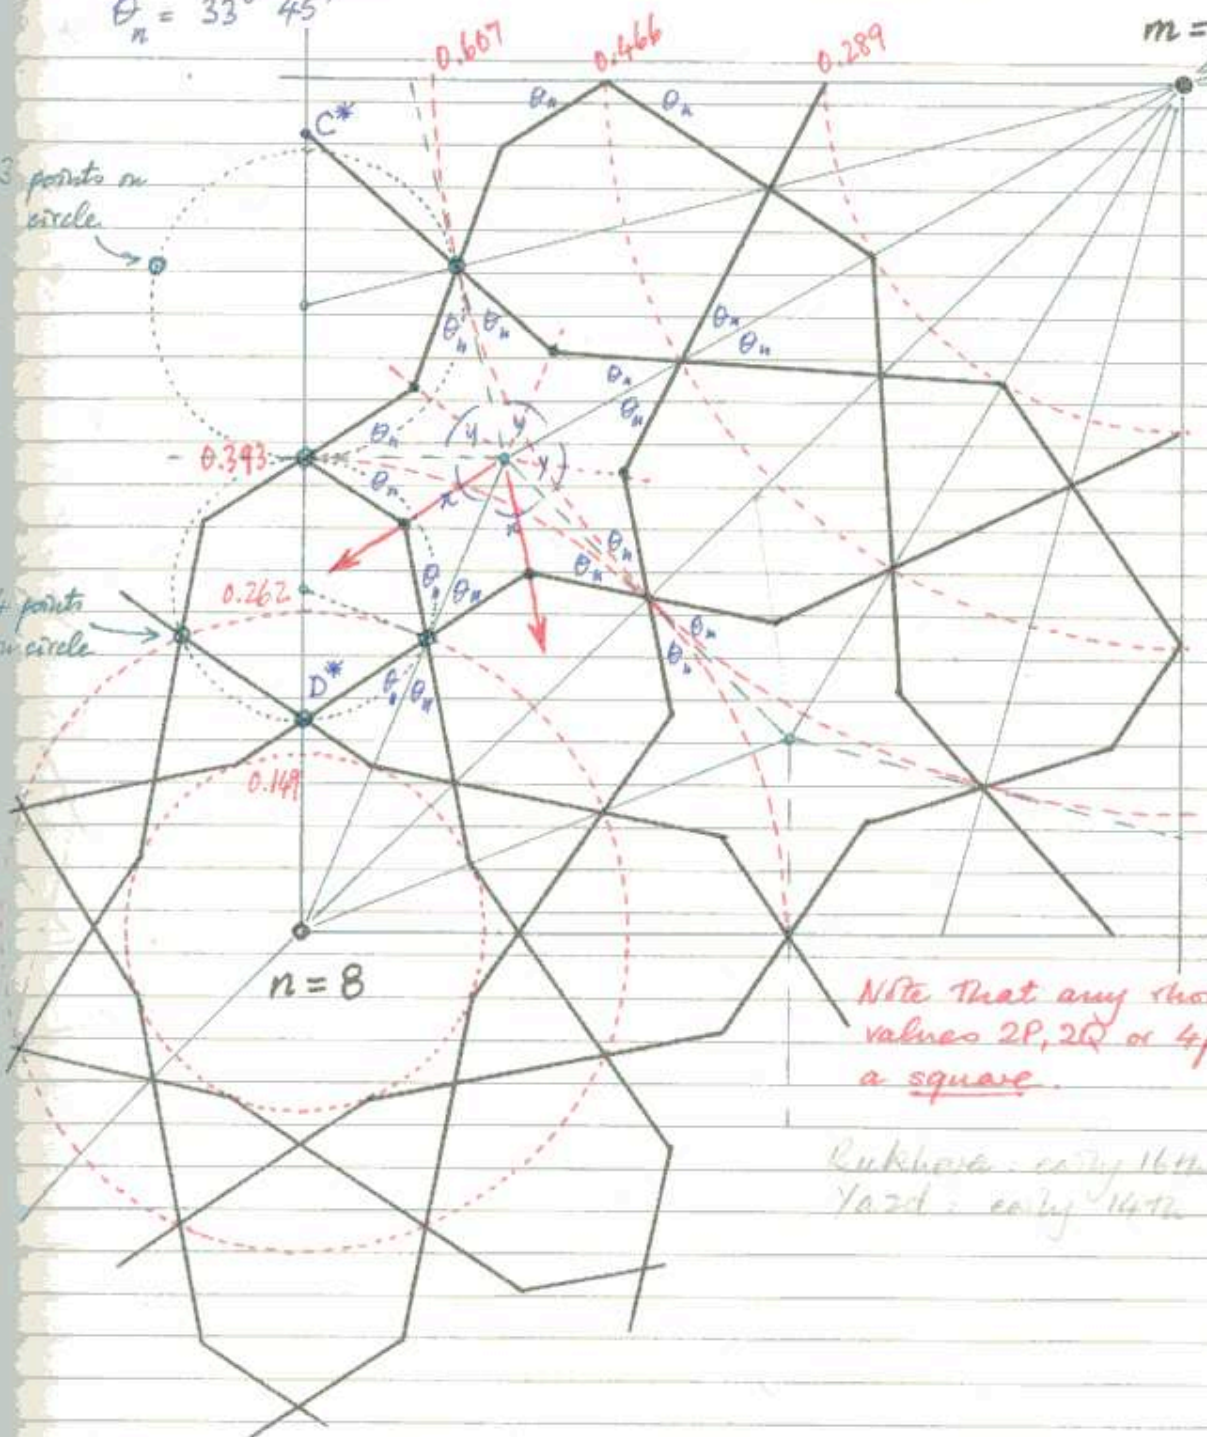 θn = 33° 45'
0.607
0.466
0.289
m =
C*
θn
θn
3 points on
circle
θn
θn
θn
θn
θn
θn
0.393
θn
θn
y
y
y
x
x
θn
θn
0.262
θn
θn
4 points
on circle
D*
θn
θn
θn
θn
0.149
n = 8
Note that any
values 2P, 2Q or
a square.
early 16th
Yazd: early 14th